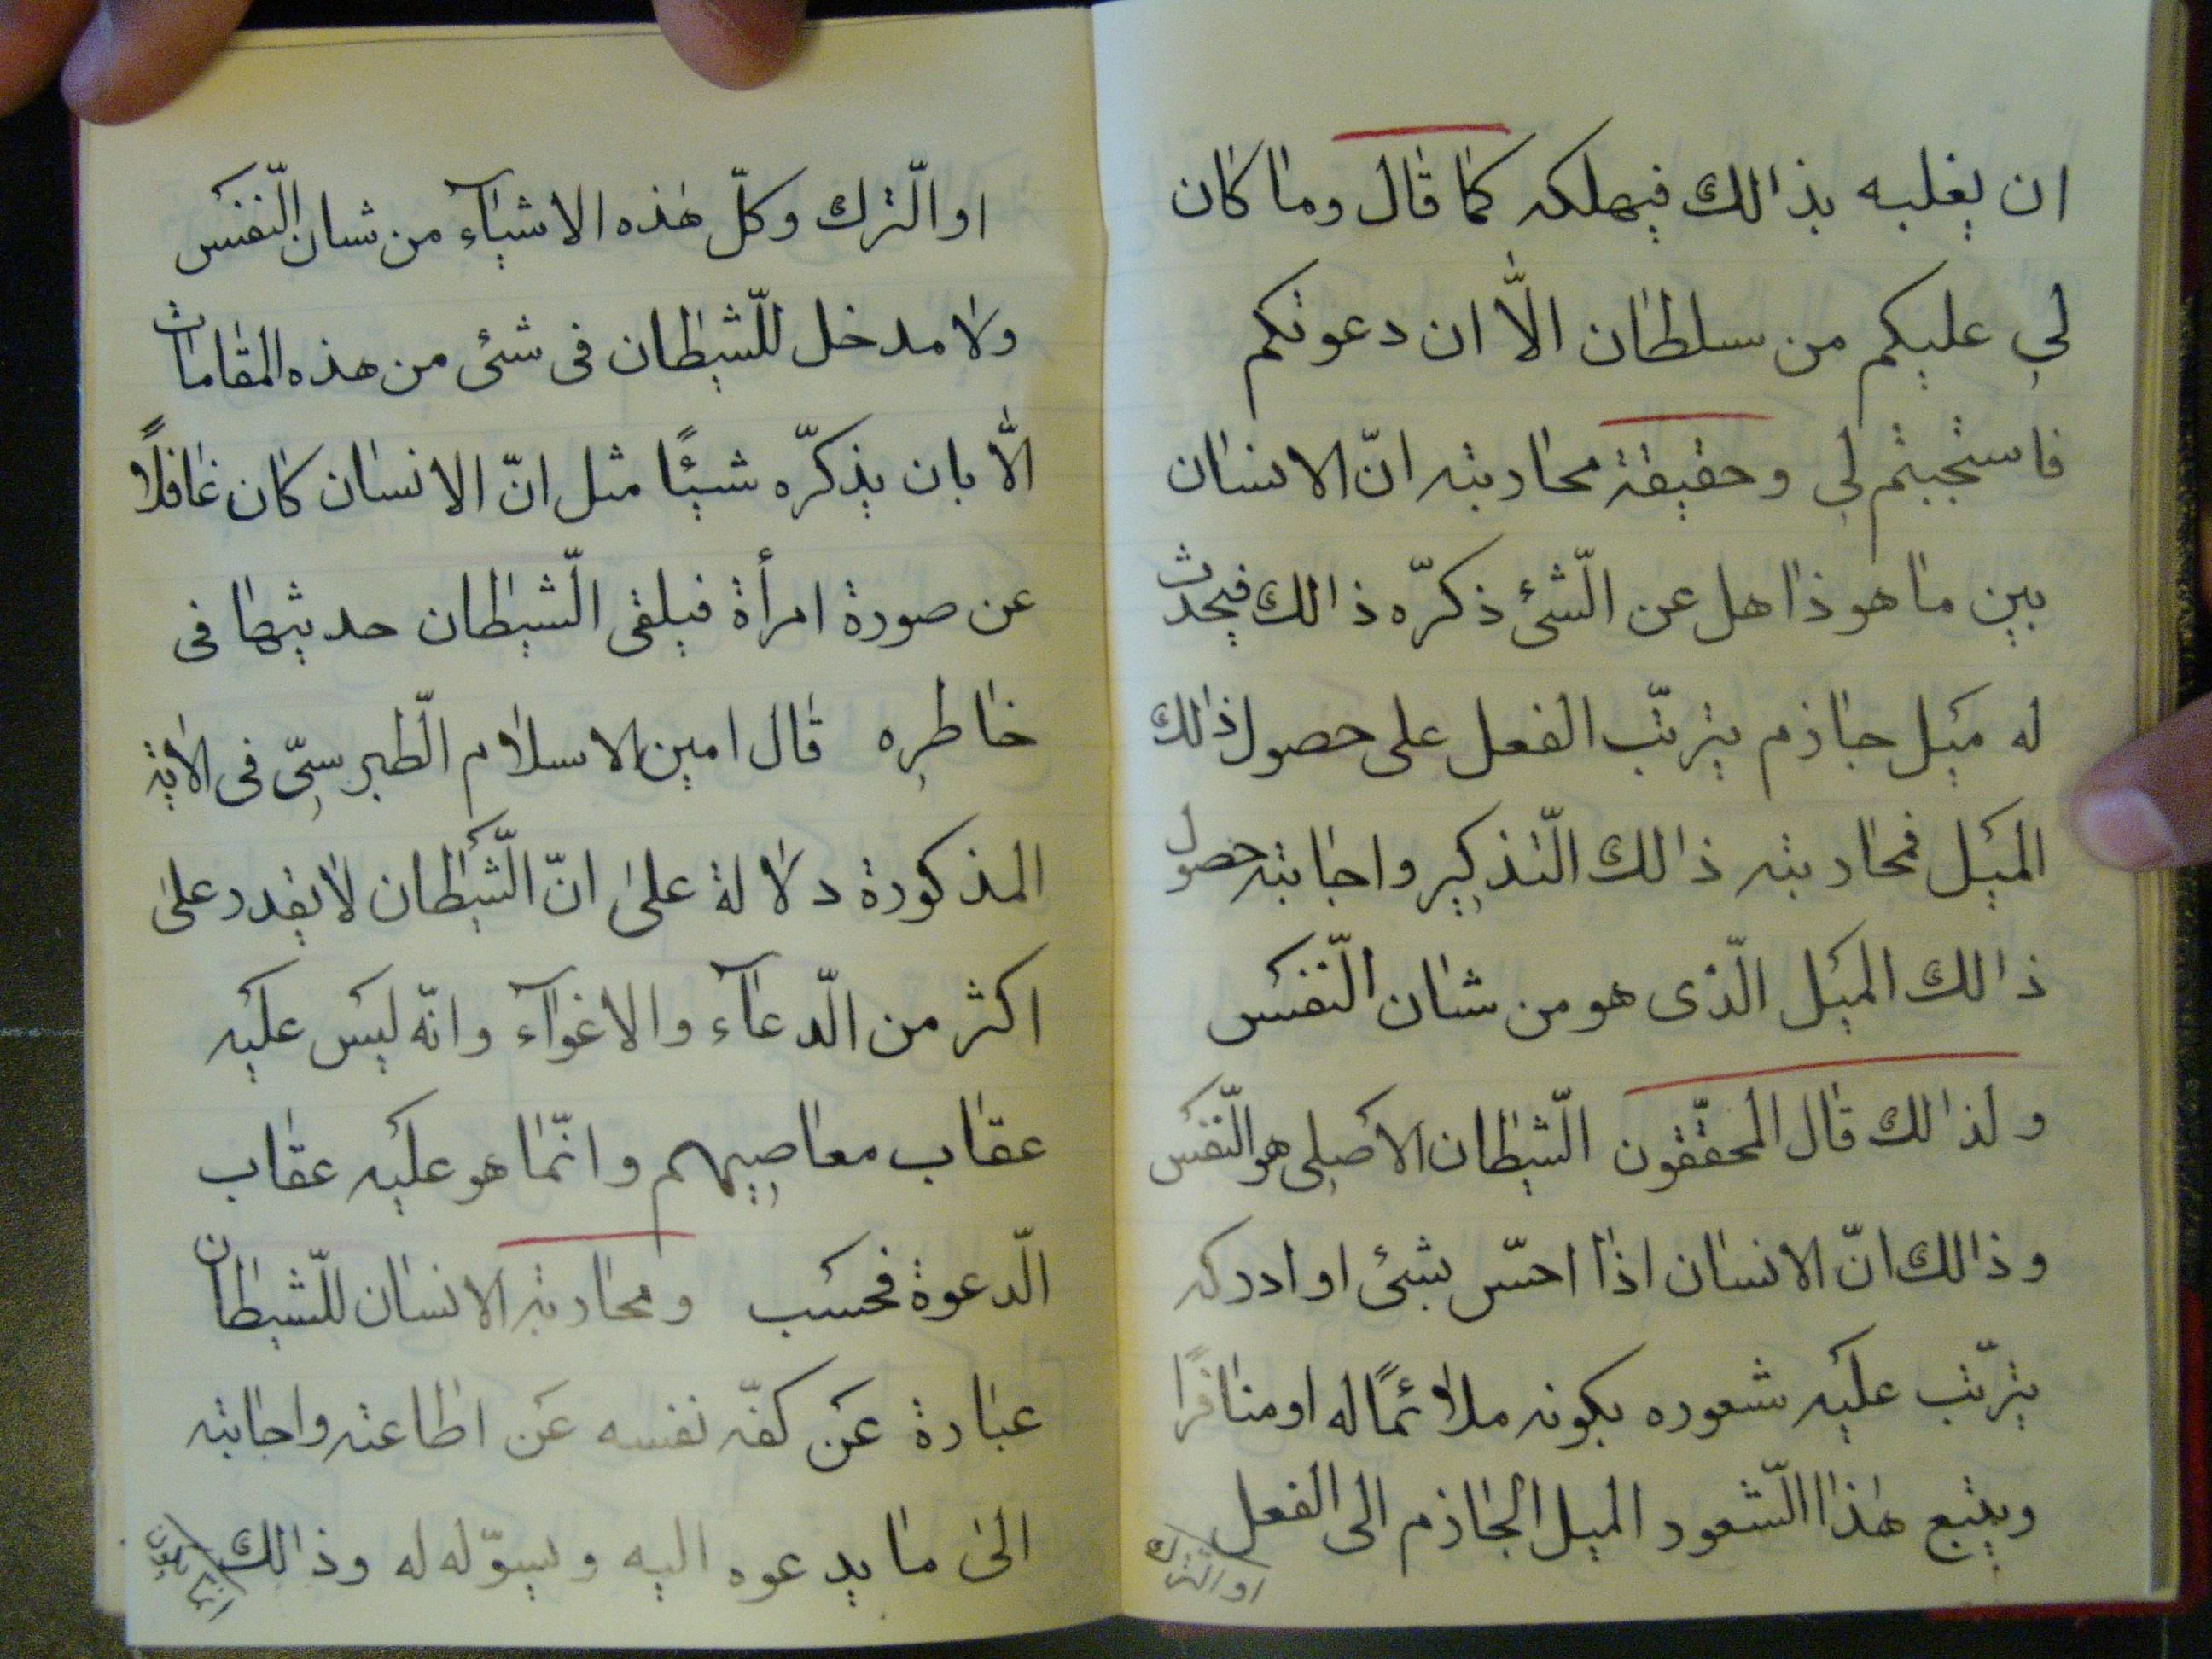 ان يغلبه بذالك فيهلكه كما قال وما كان
لي عليكم من سلطان الّا ان دعوتكم
فاستجبتم لي وحقيقة محاربته انّ الانسان
بين ما هو ذاهل عن الّشئ ذكرّه ذالك فيحدث
له ميل جازم يترتّب الفعل على حصول ذلك
الميل فمحاربته ذالك الّتذكير واجابته حصول
ذالك الميل الّذى هو من شان الّنفس
ولذالك قال المحقّقون الّشيطان الاصلى هو الّنفس
وذالك انّ الانسان اذا احسّ بشئ او ادركه
يترتّب عليه شعوره بكونه ملائمًا له او منافرًا
ويتبع هذا الّشعور الميل الجازم الى الفعل
او الّترك
او الّترك وكلّ هذه الاشيآء من شان الّنفس
ولا مدخل للّشيطان فى شئ من هذه المقامات
الّا بان يذكرّه شيئًا مثل انّ الانسان كان غافلًا
عن صورة امرأة فيلقى الّشيطان حديثها فى
خاطره قال امين الاسلام الّطبرسىّ فى الاية
المذكورة دلالة على انّ الّشيطان لا يقدر على
اكثر من الّدعآء والاغوآء وانّه ليس عليه
عقاب معاصيهم وانّما هو عليه عقاب
الّدعوة فحسب ومحاربة الانسان للّشيطان
عبارة عن كفّه نفسه عن اطاعته واجابته
الى ما يدعوه اليه ويسوّله له وذالك
انّما يكون